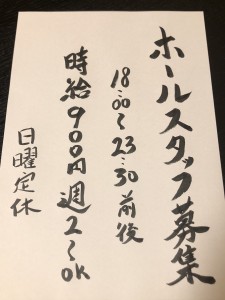 ホールスタッフ募集
18:00〜23:30前後
時給900円週2〜OK
日曜定休